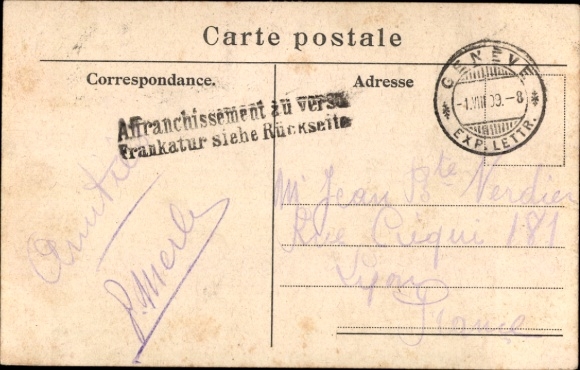 Carte postale
Correspondance.
Adresse
GENÈVE
-4.VIII.09.-8
EXP. LETTR.
Affranchissement au verso
Frankatur siehe Rückseite
Mr Jean Bte Verdier
Rue Crequi 181
Lyon
France
J. Merle